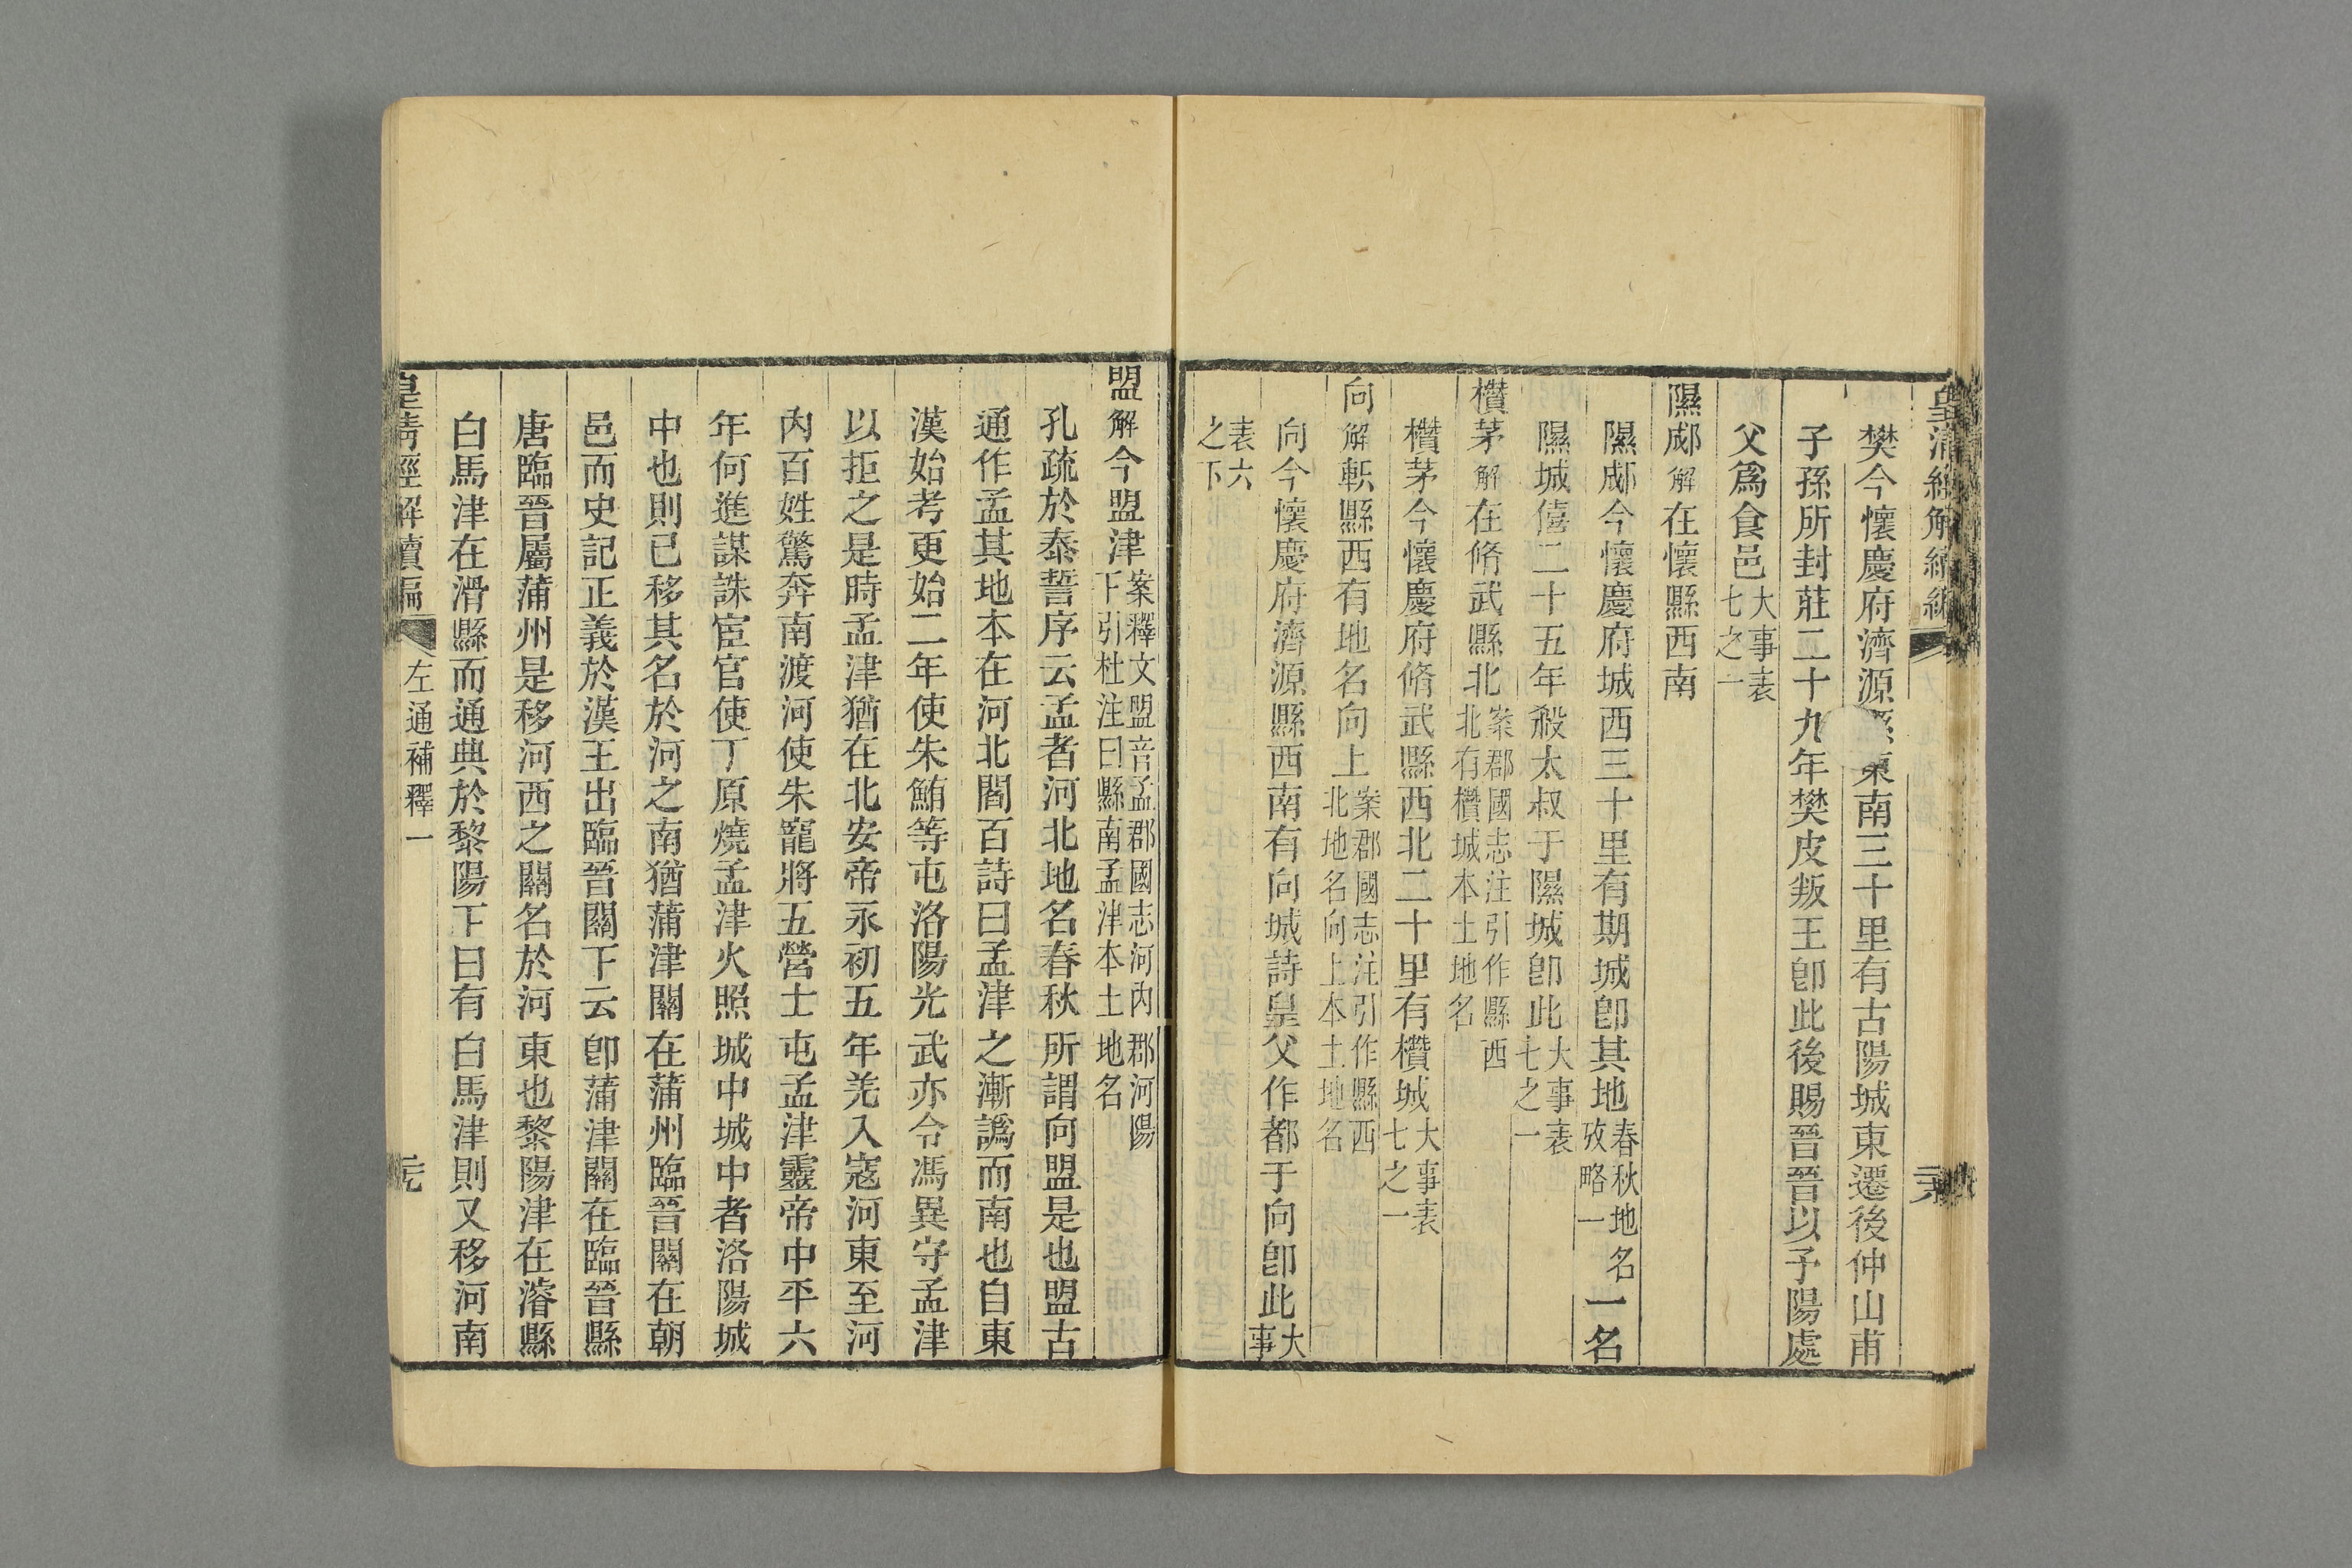 皇清經解續編
樊今懷慶府濟源縣東南三十里有古陽城東遷後仲山甫
子孫所封莊二十九年樊皮叛王卽此後賜晉晉以予陽處
父爲食邑大事表七之一
隰郕解在懷縣西南
隰郕今懷慶府城西三十里有期城卽其地春秋地名攷略一一名
隰城僖二十五年殺太叔于隰城卽此大事表七之一
欑茅解在脩武縣北案郡國志注引作縣西北有欑城本土地名
欑茅今懷慶府脩武縣西北二十里有欑城大事表七之一
向解軹縣西有地名向上案郡國志注引作縣西北地名向上本土地名
向今懷慶府濟源縣西南有向城詩皇父作都于向卽此大事
表六之下
盟解今盟津案釋文盟音孟郡國志河內郡河陽下引杜注曰縣南孟津本土地名
孔疏於泰誓序云孟者河北地名春秋所謂向盟是也盟古
通作孟其地本在河北閻百詩曰孟津之漸譌而南也自東
漢始考更始二年使朱鮪等屯洛陽光武亦令馮異守孟津
以拒之是時孟津猶在北安帝永初五年羌入寇河東至河
內百姓驚奔南渡河使朱寵將五營士屯孟津靈帝中平六
年何進謀誅宦官使丁原燒孟津火照城中城中者洛陽城
中也則已移其名於河之南猶蒲津關在蒲州臨晉關在朝
邑而史記正義於漢王出臨晉關下云卽蒲津關在臨晉縣
唐臨晉屬蒲州是移河西之關名於河東也黎陽津在濬縣
白馬津在滑縣而通典於黎陽下曰有白馬津則又移河南
皇清經解續編 左通補釋一 元